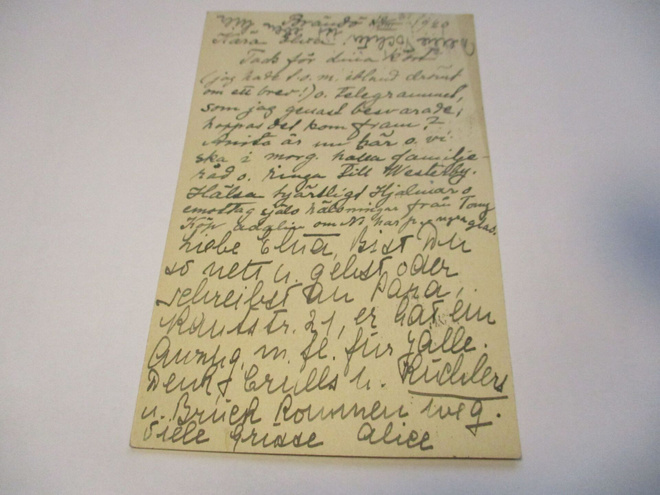 Brändö
Kära Elna!
Tack för dina kort
(jag hade t.o.m. ibland drömt
om ett brev!) o. telegrammet,
som jag genast besvarade,
hoppas det kom fram?
Anita är nu här o. vi
ska i morg. hålla familje-
råd o. ringa till Westerby.
Hälsa hjärtligt Hjalmar o.
emottag själv hälsningar från Tony
Köp om Ni har
Liebe Elna, bist Du
so nett u. gehst oder
schreibst an Papa,
Kantstr. 21, er hat ein
Anzug m. fl. für Kalle.
Denk Crulls u. Küchlers
u. Brück kommen weg.
Viele Grüsse Alice